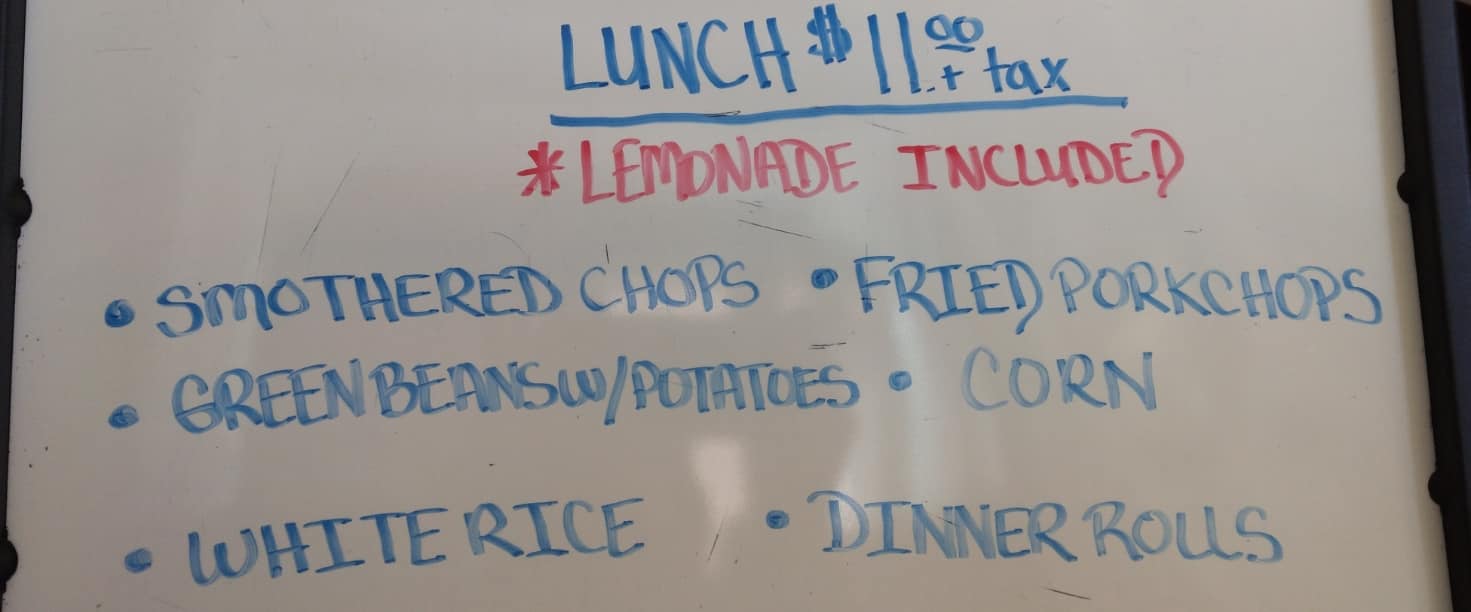 LUNCH $11.00 + tax
*LEMONADE INCLUDED
• SMOTHERED CHOPS • FRIED PORKCHOPS
• GREEN BEANS W/POTATOES • CORN
• WHITE RICE • DINNER ROLLS